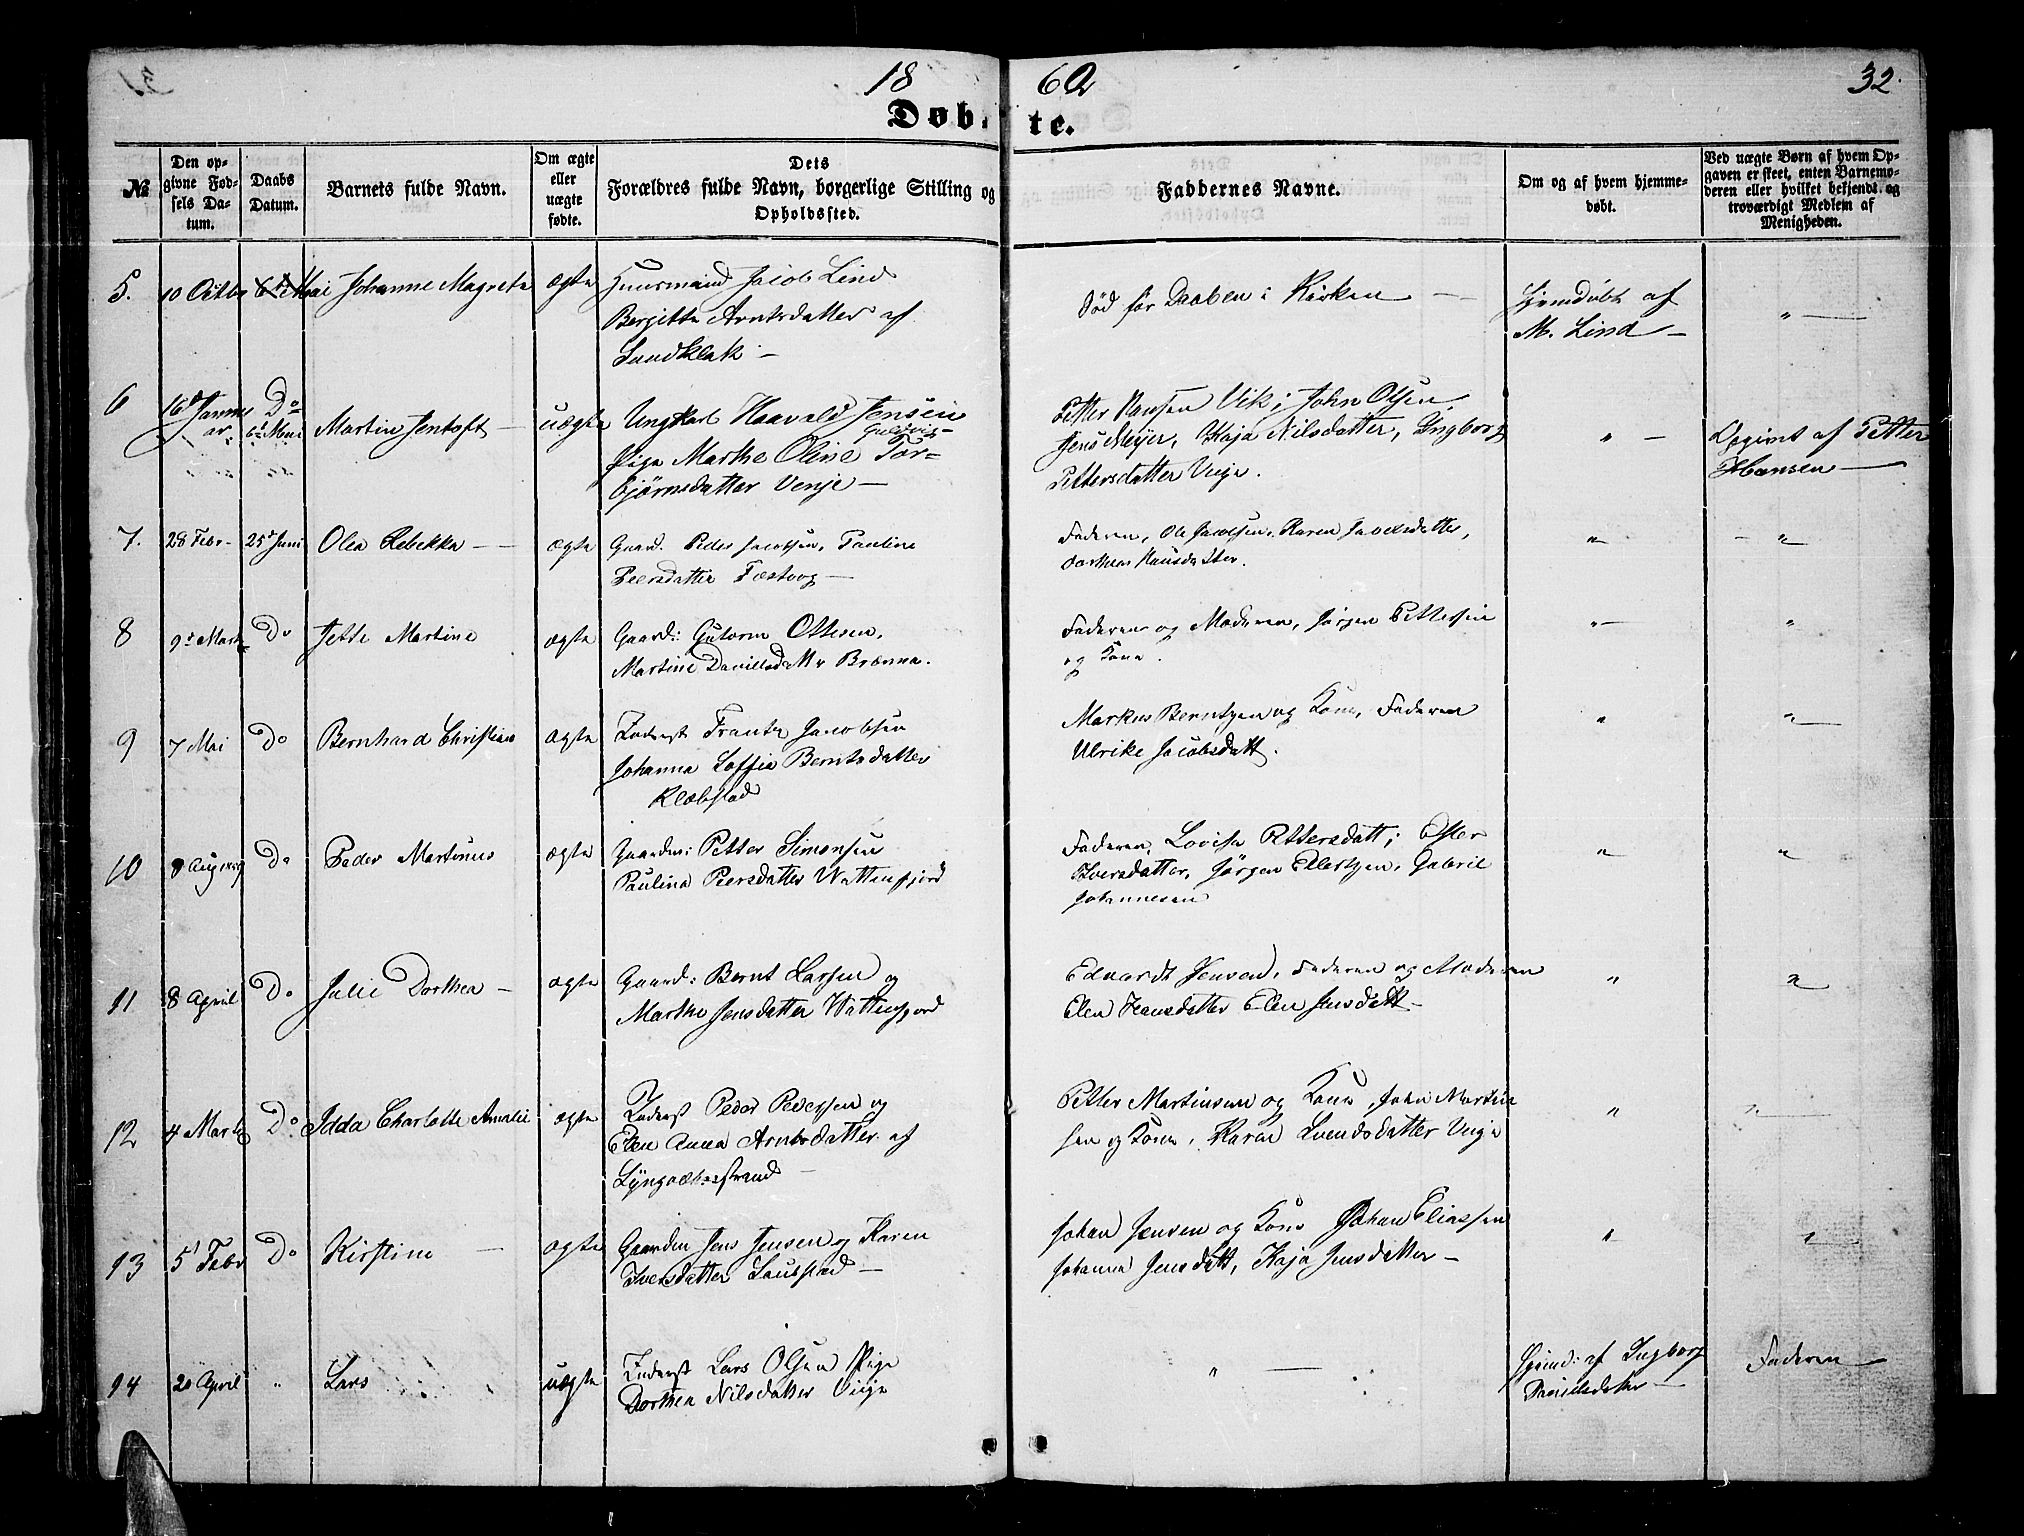 18 60 32.
Døbte.
No
Den opgivne Fødsels Datum.
Daabs Datum.
Barnets fulde Navn.
Om ægte eller uægte fødte.
Dets Forældres fulde Navn, borgerlige Stilling og Opholdssted.
Faddernes Navne.
Om og af hvem hjemmedøbt.
Ved uægte Børn af hvem Opgaven er skeet, enten Barnemoderen eller hvilket bekjendt og troværdigt Medlem af Menigheden.
5. 10 Octbr 6 Mai Johanne Magreta ægte Huusmand Jacob Lind
Bergitta Arntsdatter af
Sandklak –
Død før Daaben i Kirken –
Hjemdøbt af
M. Lind –
" –
6 16d Januar Do 6d Mai Martin Jentoft – uægte Ungkarl Haavald Jensen
Guldvig
Pige Marthe Oline Tor=
bjørnsdatter Venje –
Petter Hansen Vik; John Olsen,
Jens Meyer, Kaja Nilsdatter, Ingborg
Pettersdatter Veije.
" –
Opgivet af Petter
Hansen –
7. 28 Febr 25d Juni Olea Rebekka – ægte Gaard. Peder Jacobsen, Pauline
Peersdatter Festvog –
Faderen, Ole Jacobsen, Karen Jacobsdatter,
Dorthea Hansdatter.
" – "
8 9d Marts Do Jette Martine ægte Gaard: Gutorm Ottesen,
Martine Davidsdatter Brænna.
Faderen og Moderen, Jørgen Pettersen
og Kone.
" "
9 7 Mai Do Bernhard Christian ægte Inderst Frantz Jacobsen
Johanna Soffia Berntsdatter
Klæbstad
Markus Berntzen og Kone, Faderen
Ulrike Jacobsdatt.
" "
10 8 Aug 1859 Do Peder Martinus ægte Gaardm: Petter Simonsen
Paulina Peersdatter Wattenfjord
Faderen, Lovisa Pettersdatt; Ester
Iversdatter, Jørgen Ellertzen, Gabriel
Johannesen
" "
11 8 April Do Julie Dorthea – ægte Gaard: Bernt Larsen og
Marthe Jensdatter Wattenfjord
Edvardt Jensen, Faderen og Moderen
Elen Hansdatter Elen Jensdatt –
" "
12 4 Marts Do Idda Charlotte Amalie ægte Inderst Peder Pedersen og
Elen Anna Arntsdatter af
Lyngværstrand –
Petter Martinsen og Kone, John Martin
sen og Kone, Karen Svendsdatter Veije
" "
13 5t Febr Do Kirstine – ægte Gaardm Jens Jensen og Karen
Iversdatter Saustad –
Johan Jensen og Kone Johan Eliassen
Johanna Jensdatt, Kaja Jensdatter –
" "
14 20 April " Lars uægte Inderst Lars Olsen Pige
Dorthea Nilsdatter Veije
" –
Hjemd: af Ingborg
Danielsdatter –
Faderen